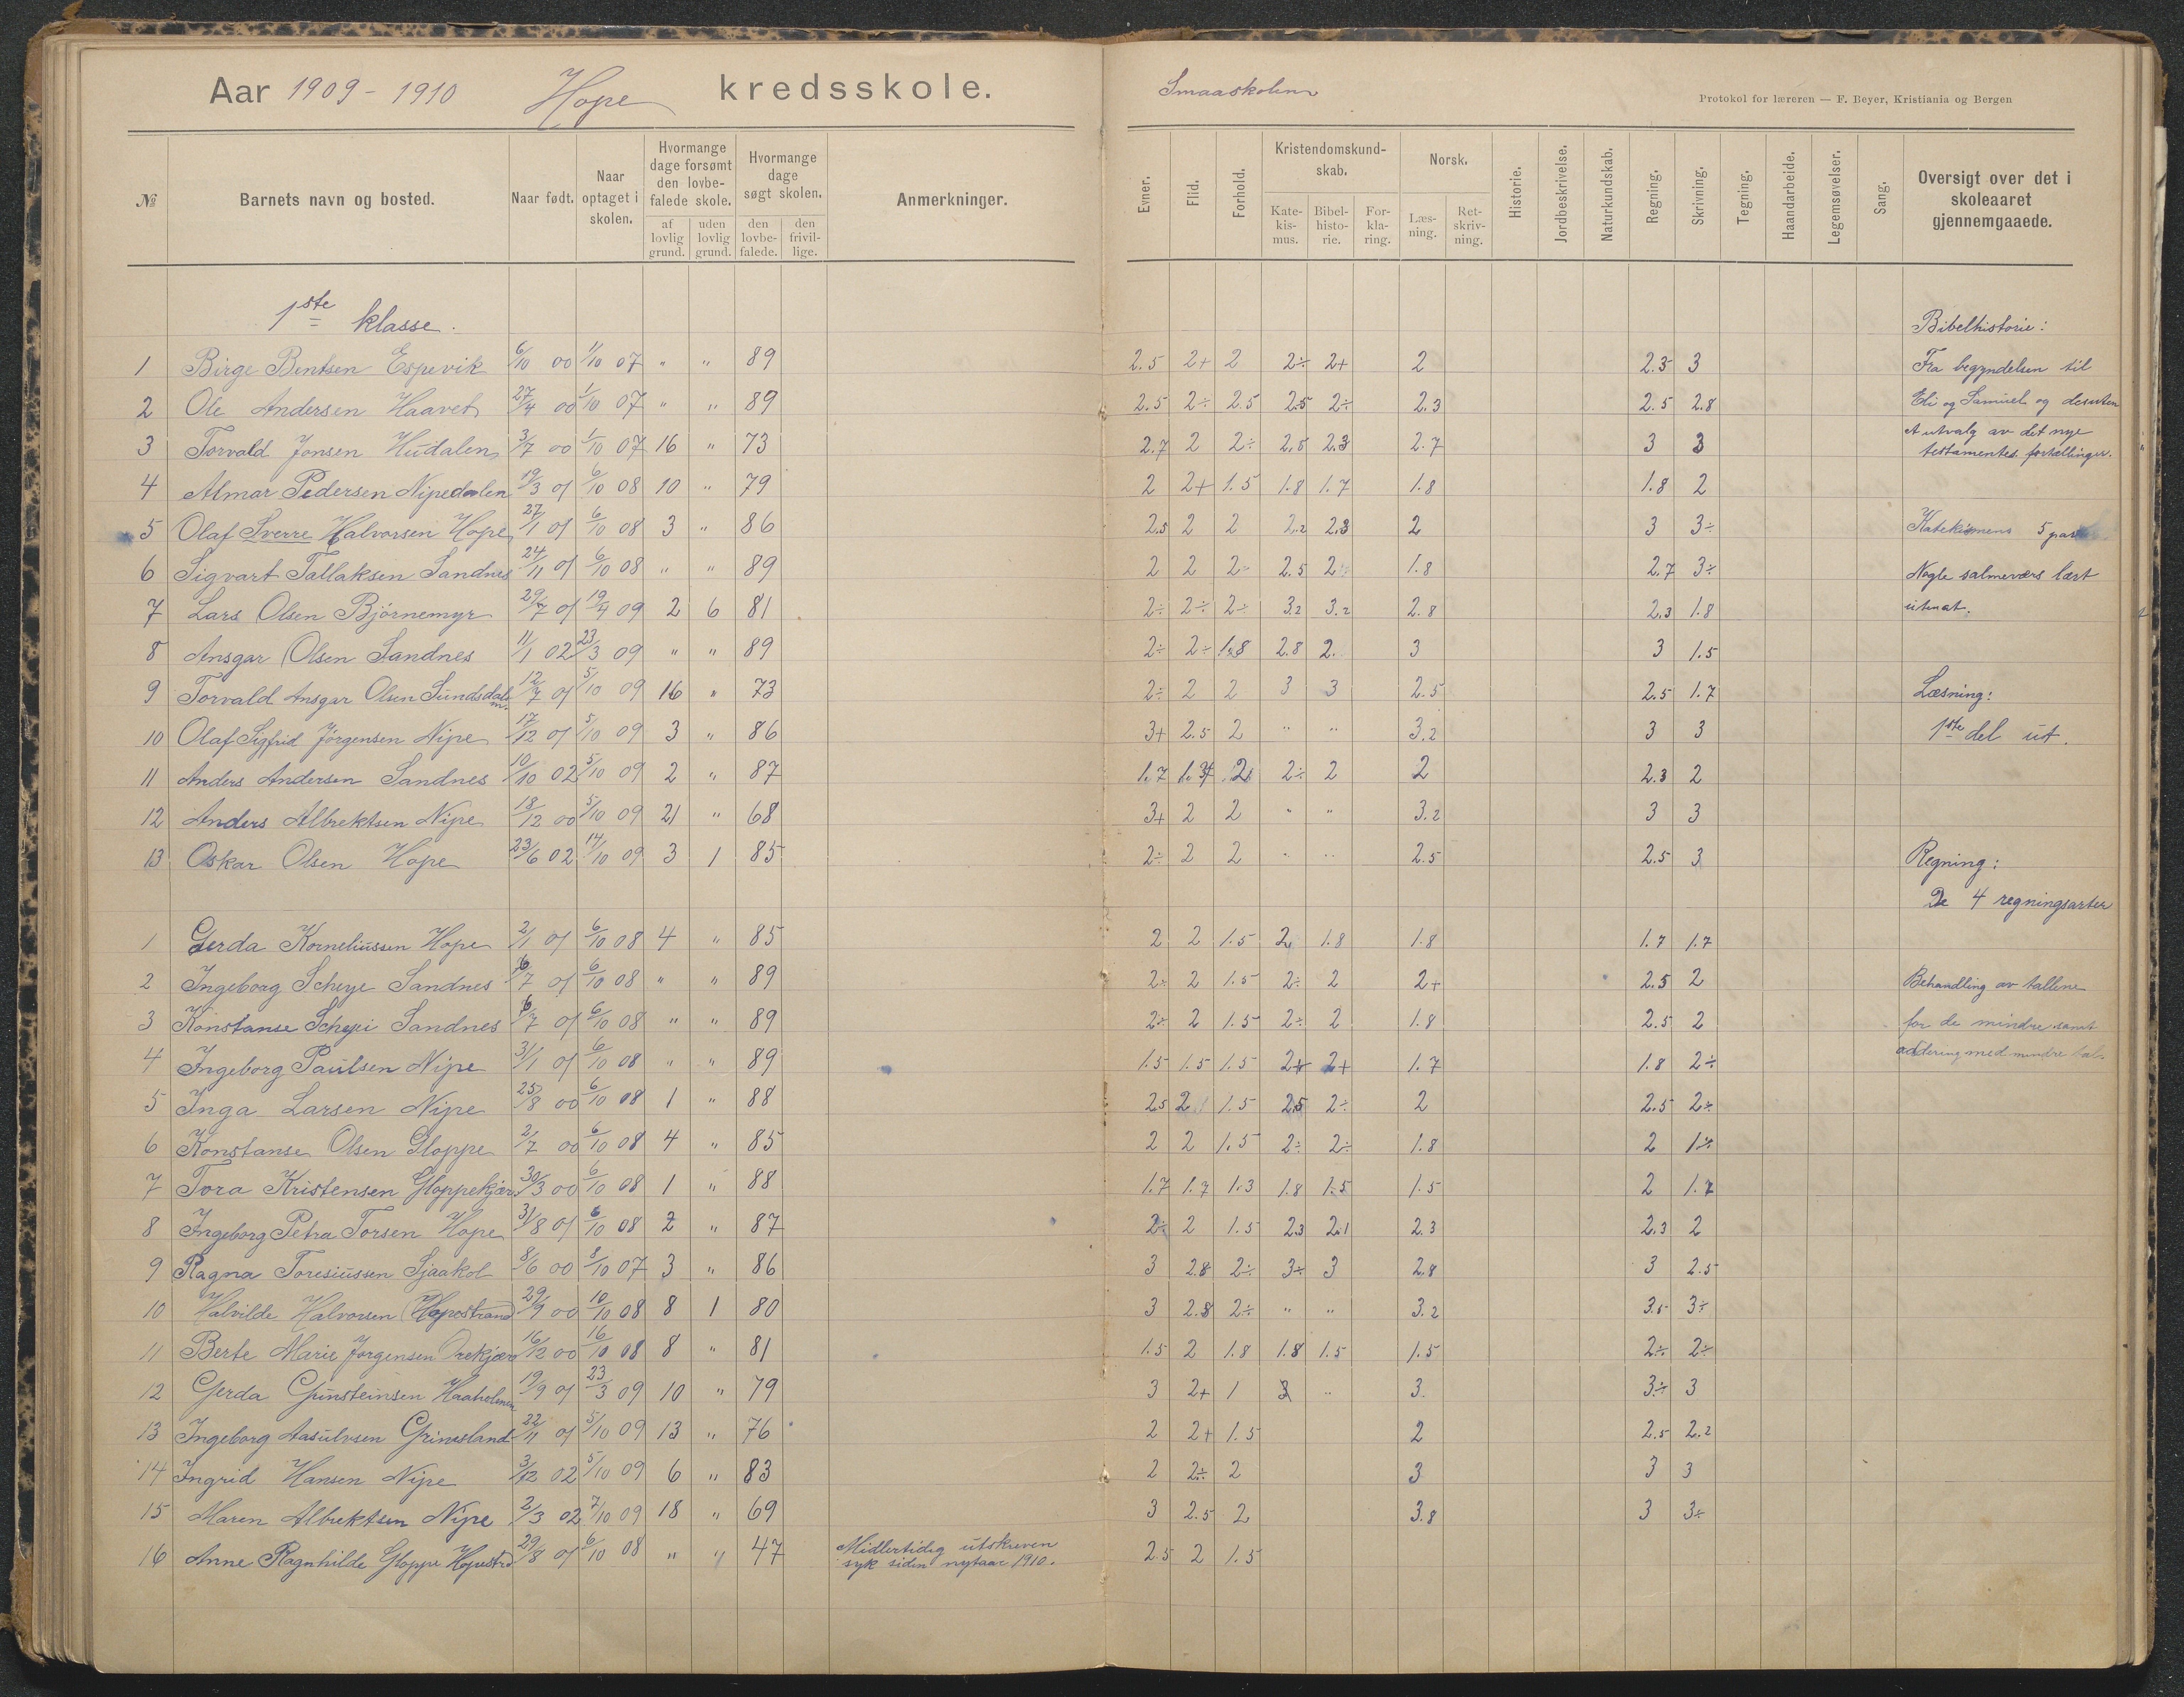 Aar 1909 - 1910 Hope kredsskole.
Smaaskolen
Protokol for læreren — F. Beyer, Kristiania og Bergen
№ Barnets navn og bosted. Naar født. Naar optaget i skolen. Hvormange dage forsømt den lovbefalede skole. af lovlig grund. uden lovlig grund. Hvormange dage søgt skolen. den lovbefalede. den frivillige. Anmerkninger.
Evner. Flid. Forhold. Kristendomskundskab. Katekismus. Bibelhistorie. Forklaring. Norsk. Læsning. Retskrivning. Historie. Jordbeskrivelse. Naturkundskab. Regning. Skrivning. Tegning. Haandarbeide. Legemsøvelser. Sang. Oversigt over det i skoleaaret gjennemgaaede.
1ste klasse. Bibelhistorie:
1 Birge Bentsen Espevik 6/10 00 1/10 07 " " 89 2.5 2+ 2 2÷ 2+ 2 2.5 3 Fra begyndelsen til
2 Ole Andersen Haavet 27/4 00 1/10 07 " " 89 2.5 2÷ 2.5 2.5 2÷ 2.3 2.5 2.8 Eli og Samuel og desuten
3 Torvald Jonsen Hudalen 3/7 00 1/10 07 16 " 73 2.7 2 2÷ 2.8 2.3 2.7 3 3 et utvalg av det nye
testamentes fortællinger.
4 Almar Pedersen Nipedalen 19/3 01 6/10 08 10 " 79 2 2+ 1.5 1.8 1.7 1.8 1.8 2
5 Olaf Sverre Halvorsen Hope 27/1 01 6/10 08 3 " 86 2.5 2 2 2.2 2.3 2 3 3÷ 5
6 Sigvart Tallaksen Sandnes 24/11 01 6/10 08 " " 89 2 2 2÷ 2.5 2 1.8 2.7 3÷ Nogle salmevers lært
7 Lars Olsen Bjørnemyr 29/7 01 19/4 09 2 6 81 2÷ 2÷ 2÷ 3.2 3.2 2.8 2.3 1.8 utenat.
8 Ansgar Olsen Sandnes 11/1 02 23/3 09 " " 89 2÷ 2÷ 1.8 2.8 2. 3 3 1.5
9 Torvald Ansgar Olsen 12/7 01 5/10 09 16 " 73 2÷ 2 2 3 3 2.5 2.5 1.7 Læsning:
10 Olaf Sigfrid Jørgensen Nipe 17/12 01 5/10 09 3 " 86 3+ 2.5 2 " " 3.2 3 3 1ste del ut.
11 Anders Andersen Sandnes 10/10 02 5/10 09 2 " 87 1.7 2 2÷ 2 2 2.3 2
12 Anders Albrektsen Nipe 18/12 00 5/10 09 21 " 68 3+ 2 2 " " 3.2 3 3
13 Oskar Olsen Hope 23/6 02 14/10 09 3 1 85 2÷ 2 2 " " 2.5 2.5 3 Regning:
De 4 regningsarter
1 Gerda Korneliussen Hope 2/1 01 6/10 08 4 " 85 2 2 1.5 2 1.8 1.8 1.7 1.7
2 Ingeborg Scheye Sandnes 6/7 01 6/10 08 " " 89 2÷ 2 1.5 2÷ 2 2+ 2.5 2 Behandling av tallene
3 Konstanse Scheyi Sandnes 6/7 01 6/10 08 " " 89 2÷ 2 1.5 2÷ 2 1.8 2.5 2 for de mindre samt
4 Ingeborg Paulsen Nipe 31/1 01 6/10 08 " " 89 1.5 1.5 1.5 2+ 2+ 1.7 1.8 2÷ addering med mindre tal.
5 Inga Larsen Nipe 25/8 00 6/10 08 1 " 88 2.5 2 1.5 2.5 2÷ 2 2.5 2÷
6 Konstanse Olsen Gloppe 2/7 00 6/10 08 4 " 85 2 2 1.5 2÷ 2÷ 1.8 2 1÷
7 Tora Kristensen Gloppekjær 30/3 00 6/10 08 1 " 88 1.7 1.7 1.3 1.8 1.5 1.5 2 1.7
8 Ingeborg Petra Torsen Hope 31/8 01 6/10 08 2 " 87 2÷ 2 1.5 2.3 2.1 2.3 2.3 2
9 Ragna Toresiussen 8/6 00 8/10 07 3 " 86 3 2.8 2÷ 3÷ 3 2.8 3 2.5
10 Halvilde Halvorsen Hopestrand 29/9 00 10/10 08 8 1 80 3 2.8 2÷ " " 3.2 3.5 3÷
11 Berte Marie Jørgensen 16/12 00 16/10 08 8 " 81 1.5 2 1.8 1.8 1.5 1.5 2÷ 2÷
12 Gerda Gunsteinsen Haaholmen 19/9 01 23/3 09 10 " 79 3 2+ 1 3 " 3. 3÷ 3
13 Ingeborg Aasulvsen Grimsland 22/11 01 5/10 09 13 " 76 2 2+ 1.5 2 2.5 2.2
14 Ingrid Hansen Nipe 3/12 02 5/10 09 6 " 83 2 2÷ 2 3 3 3
15 Maren Albrektsen Nipe 2/3 02 7/10 09 18 " 69 3 2.5 2 3.8 3 3÷
16 Anne Ragnhilde Gloppe Hopestrd 29/8 01 6/10 08 " " 47 Midlertidig utskreven 2.5 2 1.5
syk siden nytaar 1910.